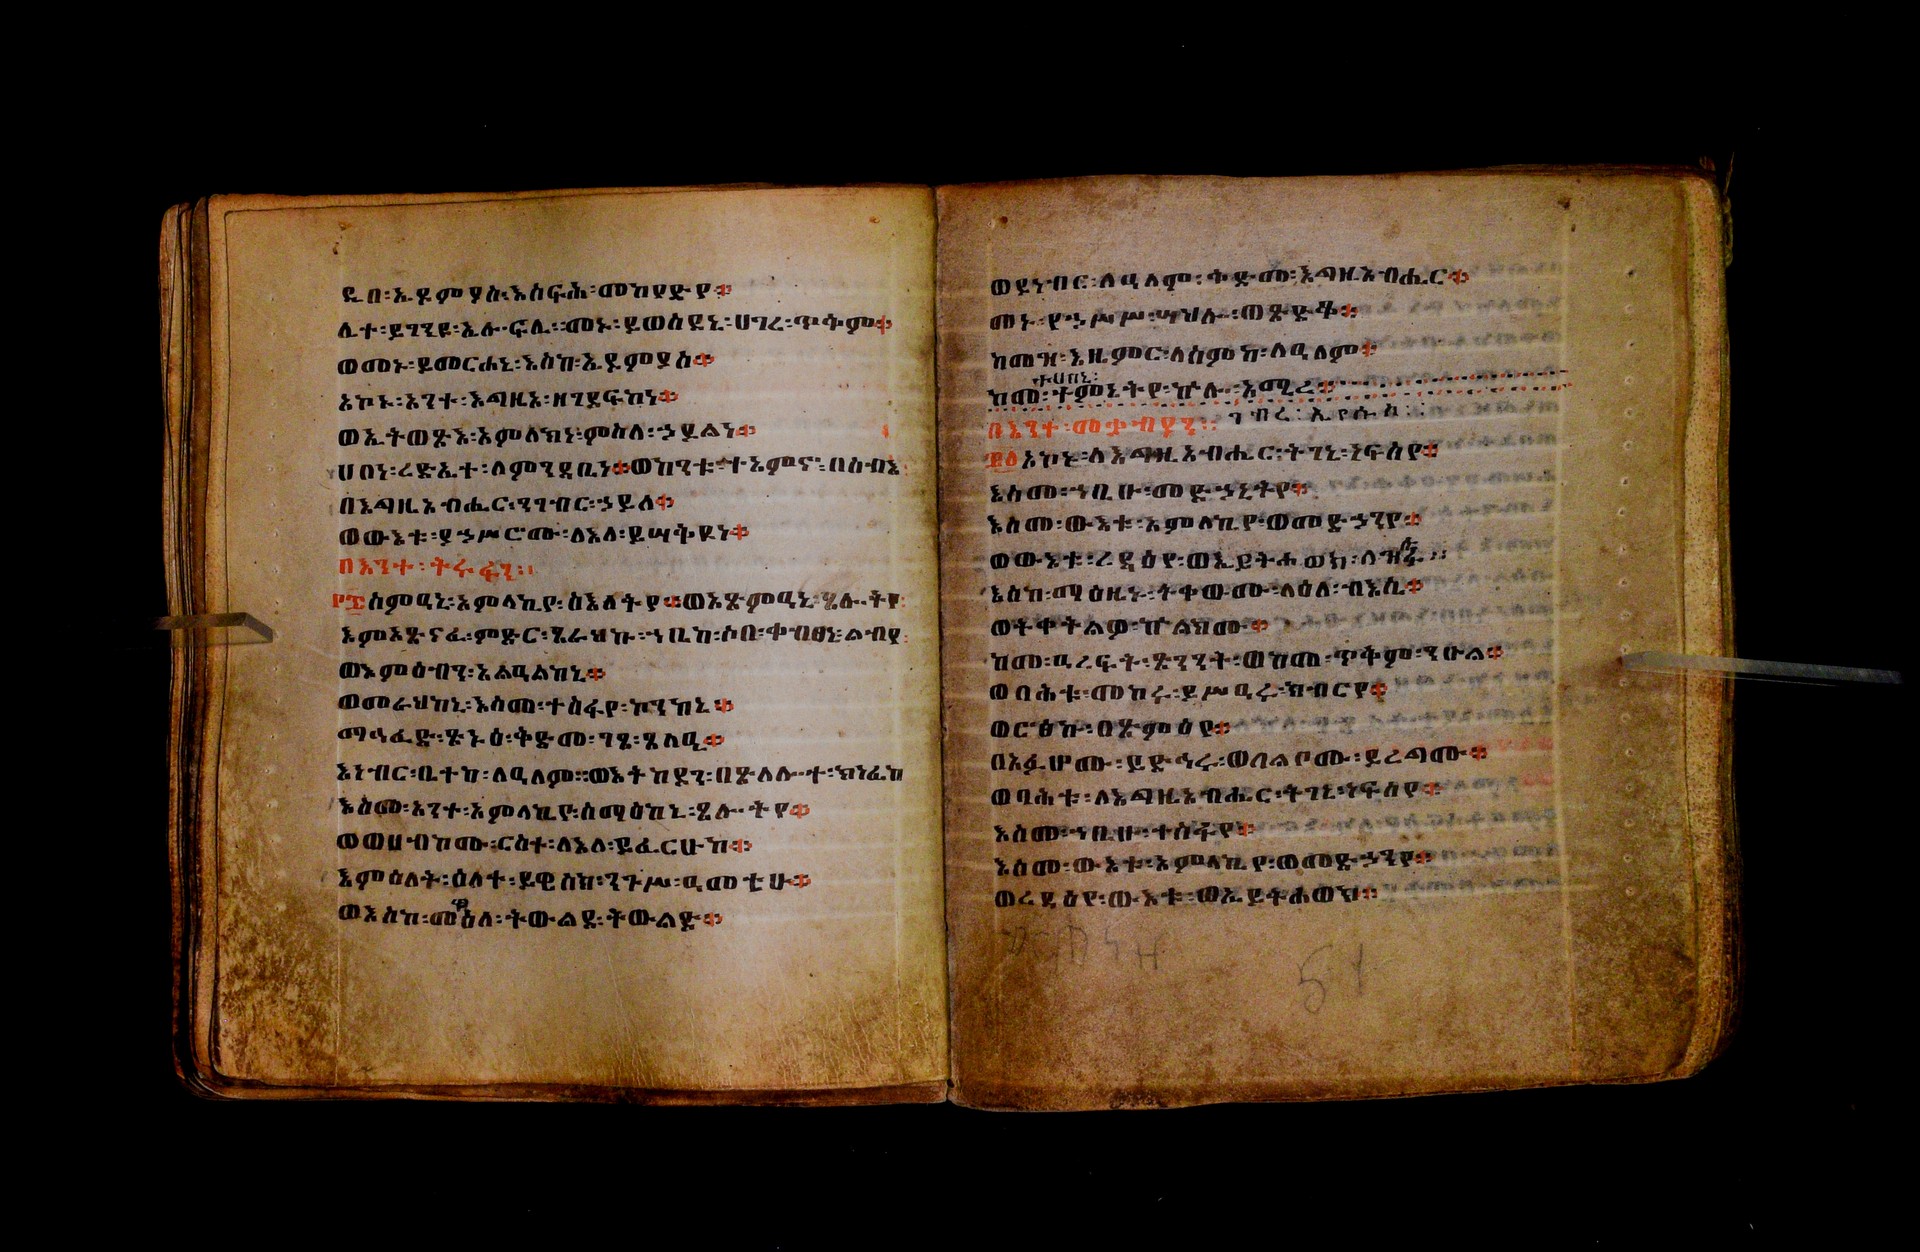 ዲበ፡ኢዶምያስ፡እሰፍሕ፡መከየድየ፨
ሊተ፡ይገንዩ፡ኢሎፍሊ፡፡መኑ፡ይወስደኒ፡ሀገረ፡ጥቅም፨
ወመኑ፡ይመርሐኒ፡እስከ፡ኢዶምያስ፨
አኮኑ፡አንተ፡እግዚእ፡ዘገደፍከነ፨
ወኢትወፅእ፡አምላክነ፡ምስለ፡ኃይልነ፨
ሀበነ፡ረድኤተ፡ለምንዳቤነ፨ወከንቱ፡ተአምኖ፡በሰብእ፡
በእግዚአብሔር፡ንገብር፡ኃይለ፨
ወውእቱ፡ያኃሥሮሙ፡ለእለ፡ይሣቅዩነ፨
በእንተ፡ትሩፋን፡፡
፷ስምዓኒ፡አምላኪየ፡ስእለትየ፨ወአጽምዓኒ፡ጸሎትየ፡
እምአጽናፈ፡ምድር፡ጸራህኩ፡ኀቤከ፡ሶበ፡ቀብፀኒ፡ልብየ፡
ወእምዕብን፡አልዓልከኒ፨
ወመራህከኒ፡እስመ፡ተስፋየ፡ኮንከኒ፨
ማኅፈድ፡ጽኑዕ፡ቅድመ፡ገጸ፡ጸላዒ፨
እነብር፡ቤተከ፡ለዓለም፡፡ወእትከደን፡በጽላሎተ፡ክነፊከ
እስመ፡አንተ፡አምላኪየ፡ሰማዕከኒ፡ጸሎትየ፨
ወወሀብከሙ፡ርስተ፡ለእለ፡ይፈርሁከ፨
እምዕለት፡ዕለተ፡ይዌስክ፡ንጉሥ፡ዓመቲሁ፨
ወእስከ፡መዋዕለ፡ትውልደ፡ትውልድ፨
ወይነብር፡ለዓለም፡ቅድመ፡እግዚአብሔር፨
መኑ፡የኃሥሥ፡ሣህሎ፡ወጽድቆ፨
ከመዝ፡እዚምር፡ለስምከ፡ለዓለም፨
ተሀበኒ፡
ከመ፡ትምኔትየ፡ኵሎ፡አሚረ፨
በእንተ፡መቃብያን፡፡ ገብረ፡ኢየሱስ፡፡
፷፩አኮኑ፡ለእግዚአብሔር፡ትገኒ፡ነፍስየ፨
እስመ፡ኀቤሁ፡መድኃኒትየ፨
እስመ፡ውእቱ፡አምላኪየ፡ወመድኃንየ፨
ወውእቱ፡ረዳዕየ፡ወኢይትሐወክ፡ለዝሉፉ፡፡
እስከ፡ማዕዜኑ፡ትቀውሙ፡ላዕለ፡ብእሲ፨
ወትቀትልዎ፡ኵልክሙ፨
ከመ፡ዓረፍት፡ጽንንት፡ወከመ፡ጥቅም፡ንሁል፨
ወባሕቱ፡መከሩ፡ይሥዓሩ፡ክብርየ፨
ወሮፅኩ፡በጽምዕየ፨
በአፉሆሙ፡ይድኅሩ፡ወበልቦሙ፡ይረግሙ፨
ወባሕቱ፡ለእግዚአብሔር፡ትገኒ፡ነፍስየ፨
እስመ፡ኀቤሁ፡ተስፋየ፨
እስመ፡ውእቱ፡አምላኪየ፡ወመድኃንየ፨
ወረዳዕየ፡ውእቱ፡ወኢይትሐወክ፨
51